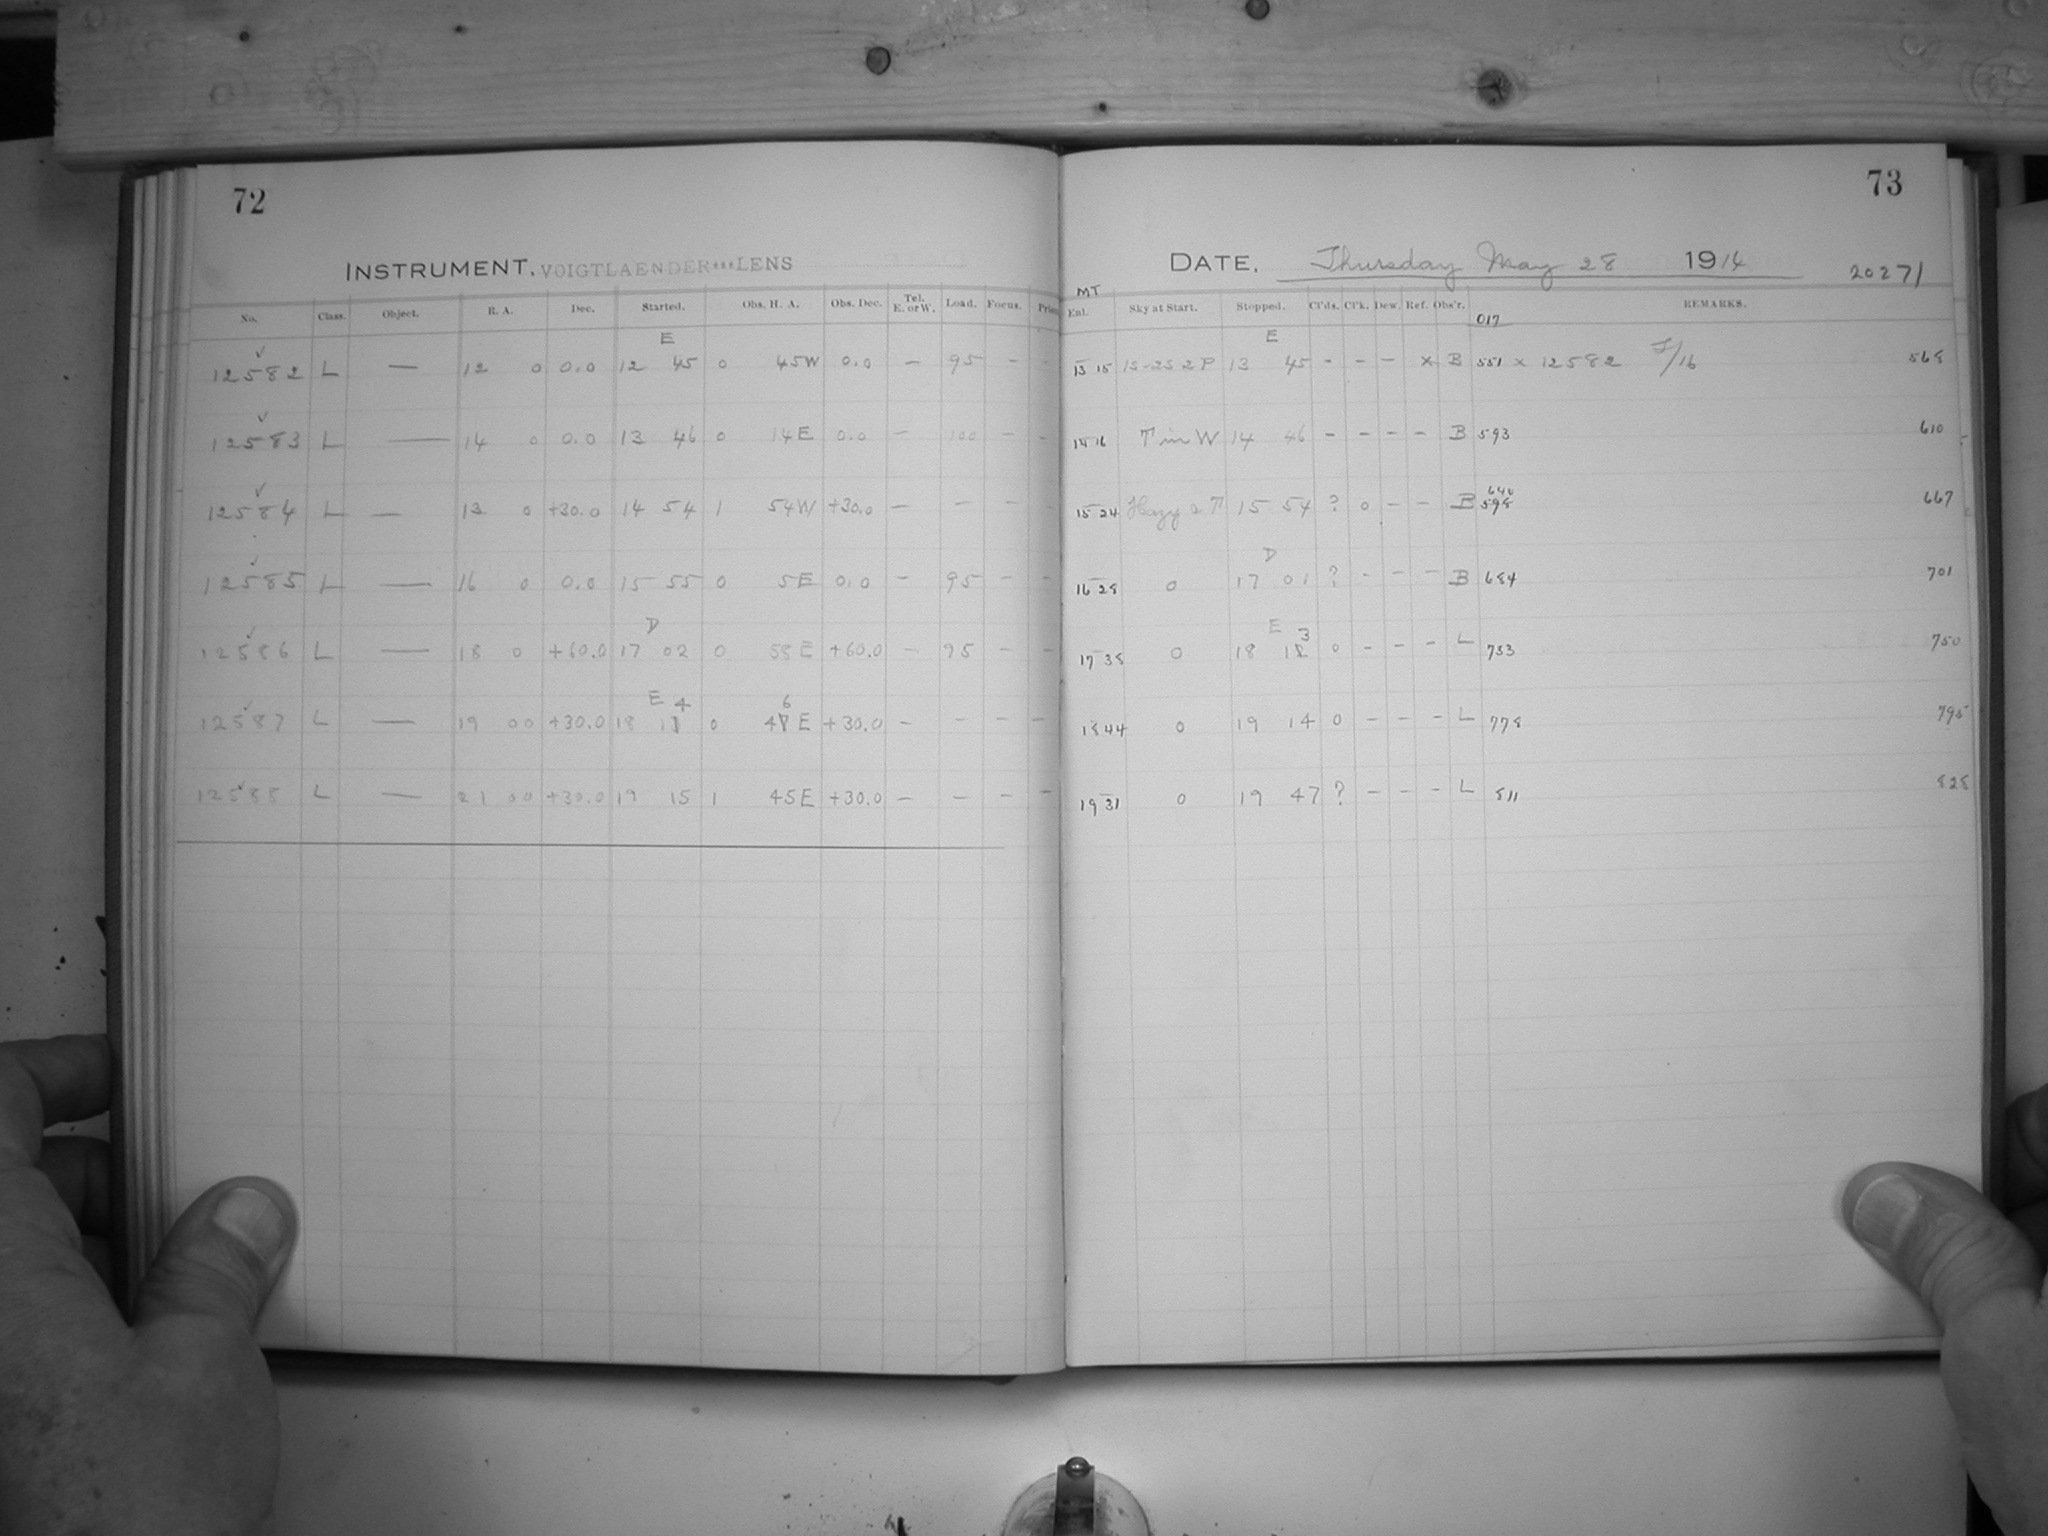 72
INSTRUMENT. VOIGTLAENDER***LENS
No. Class. Object. R. A. Dec. Started. Obs. H. A. Obs. Dec. Tel. E. or W. Load. Focus.
E
12582 L — 12 0 0.0 12 45 0 45W 0.0 — 95 – –
12583 L — 14 0 0.0 13 46 0 14E 0.0 — 100 – –
12584 L — 13 0 +30.0 14 54 1 54W +30.0 — – – –
12585 L — 16 0 0.0 15 55 0 5E 0.0 – 95 – –
D
12586 L — 18 0 +60.0 17 02 0 58E +60.0 – 95 – –
E 4 6
12587 L — 19 00 +30.0 18 0 E +30.0 – – – –
12588 L — 21 00 +30.0 19 15 1 45E +30.0 – – – –
73
DATE. Thursday May 28 1914 20271
MT
Enl. Sky at Start. Stopped. Cl'ds. Cl'k. Dew. Ref. Obs'r. REMARKS.
017
E
13 15 1S-2S 2P 13 45 – – – x B 551 x 12582 F/16 568
14 16 T in W 14 46 – – – – B 593 610
640
15 24 Hazy & T 15 54 ? 0 – – B 598 667
D
16 28 0 17 01 ? – – – B 684 701
E 3
17 38 0 18 0 – – – L 733 750
18 44 0 19 14 0 – – – L 778 795
19 31 0 19 47 ? – – – L 811 828